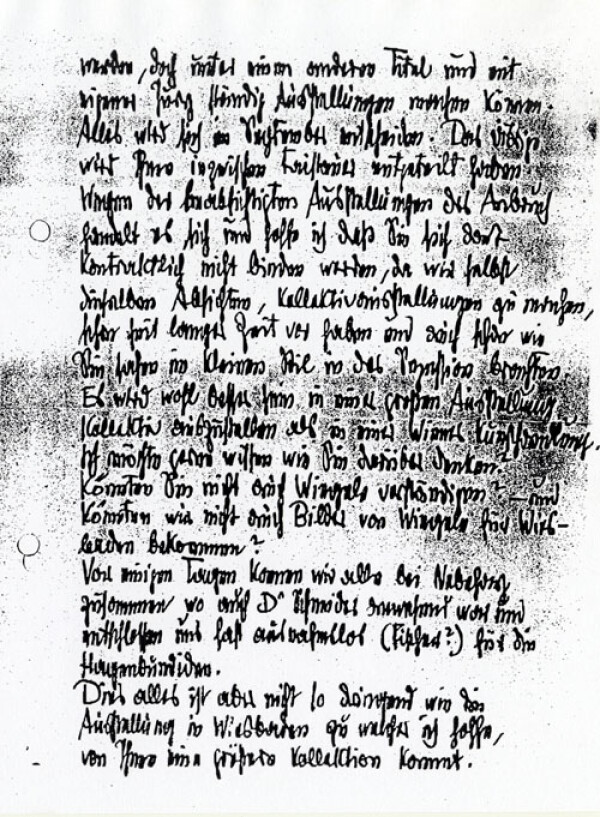 werden, doch unter einem anderen Titel und mit
eigener Jury ständig Ausstellungen machen können.
Alles wird sich im September entscheiden. Das
wird Ihnen inzwischen mitgeteilt haben.
Wegen der beabsichtigten Ausstellungen des
handelt es sich und hoffe ich daß Sie sich dort
kontraktlich nicht binden werden, da wir selbst
dieselben Absichten, Kollektivausstellungen zu machen,
schon seit langer Zeit vor haben und auch schon wie
Sie sahen im kleinen Stil in der Sezession brachten.
Es wird wohl besser sein in einer großen Ausstellung
Kollektiv auszustellen als in einer Wiener
Ich möchte gerne wissen wie Sie darüber denken?
Könnten Sie nicht auch Wiegele verständigen? – und
könnten wir nicht auch Bilder von Wiegele für Wies-
baden bekommen?
Vor einigen Tagen kamen wir alle bei Nebehay
zusammen wo auch Dr Schneider anwesend war und
entschlossen uns fast ausnahmslos (Fischer?) für die
Hagenbündiden.
Dies alles ist aber nicht so dringend wie die
Ausstellung in Wiesbaden zu welcher ich hoffe,
von Ihnen eine größere Kollektion kommt.